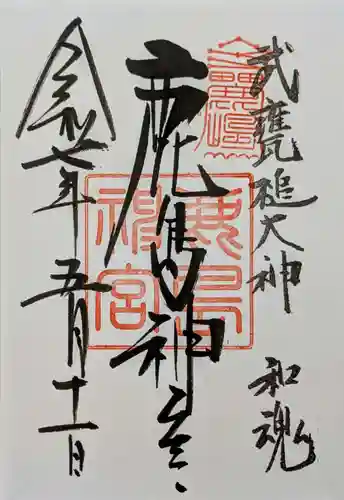 武甕槌大神 和魂
鹿島神宮
鹿島神宮
令和七年 五月十一日